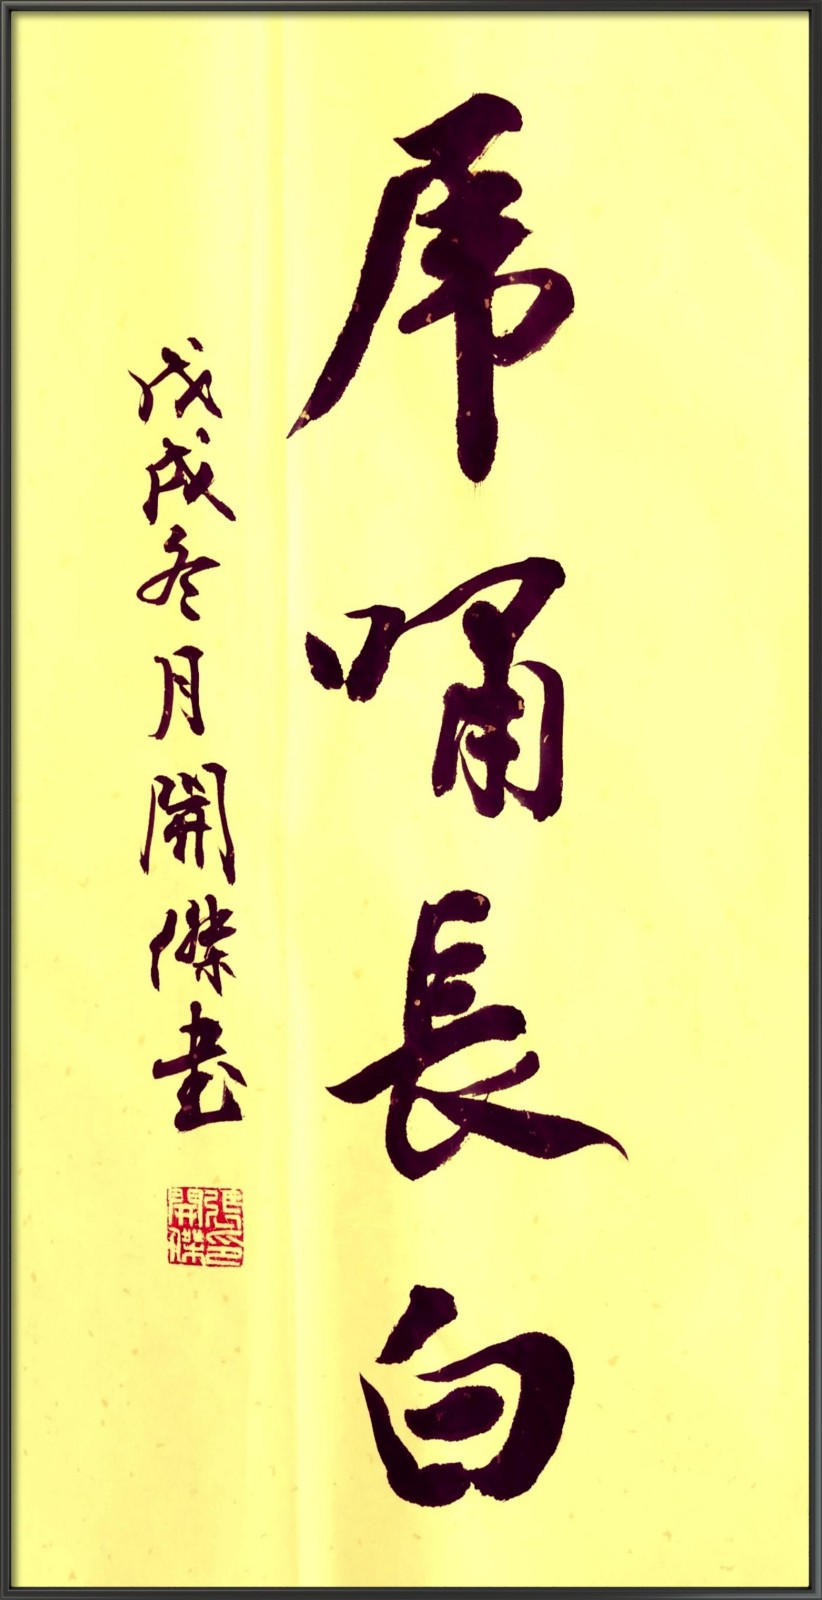 虎嘯長白
戊戌冬月開傑書
張開傑印